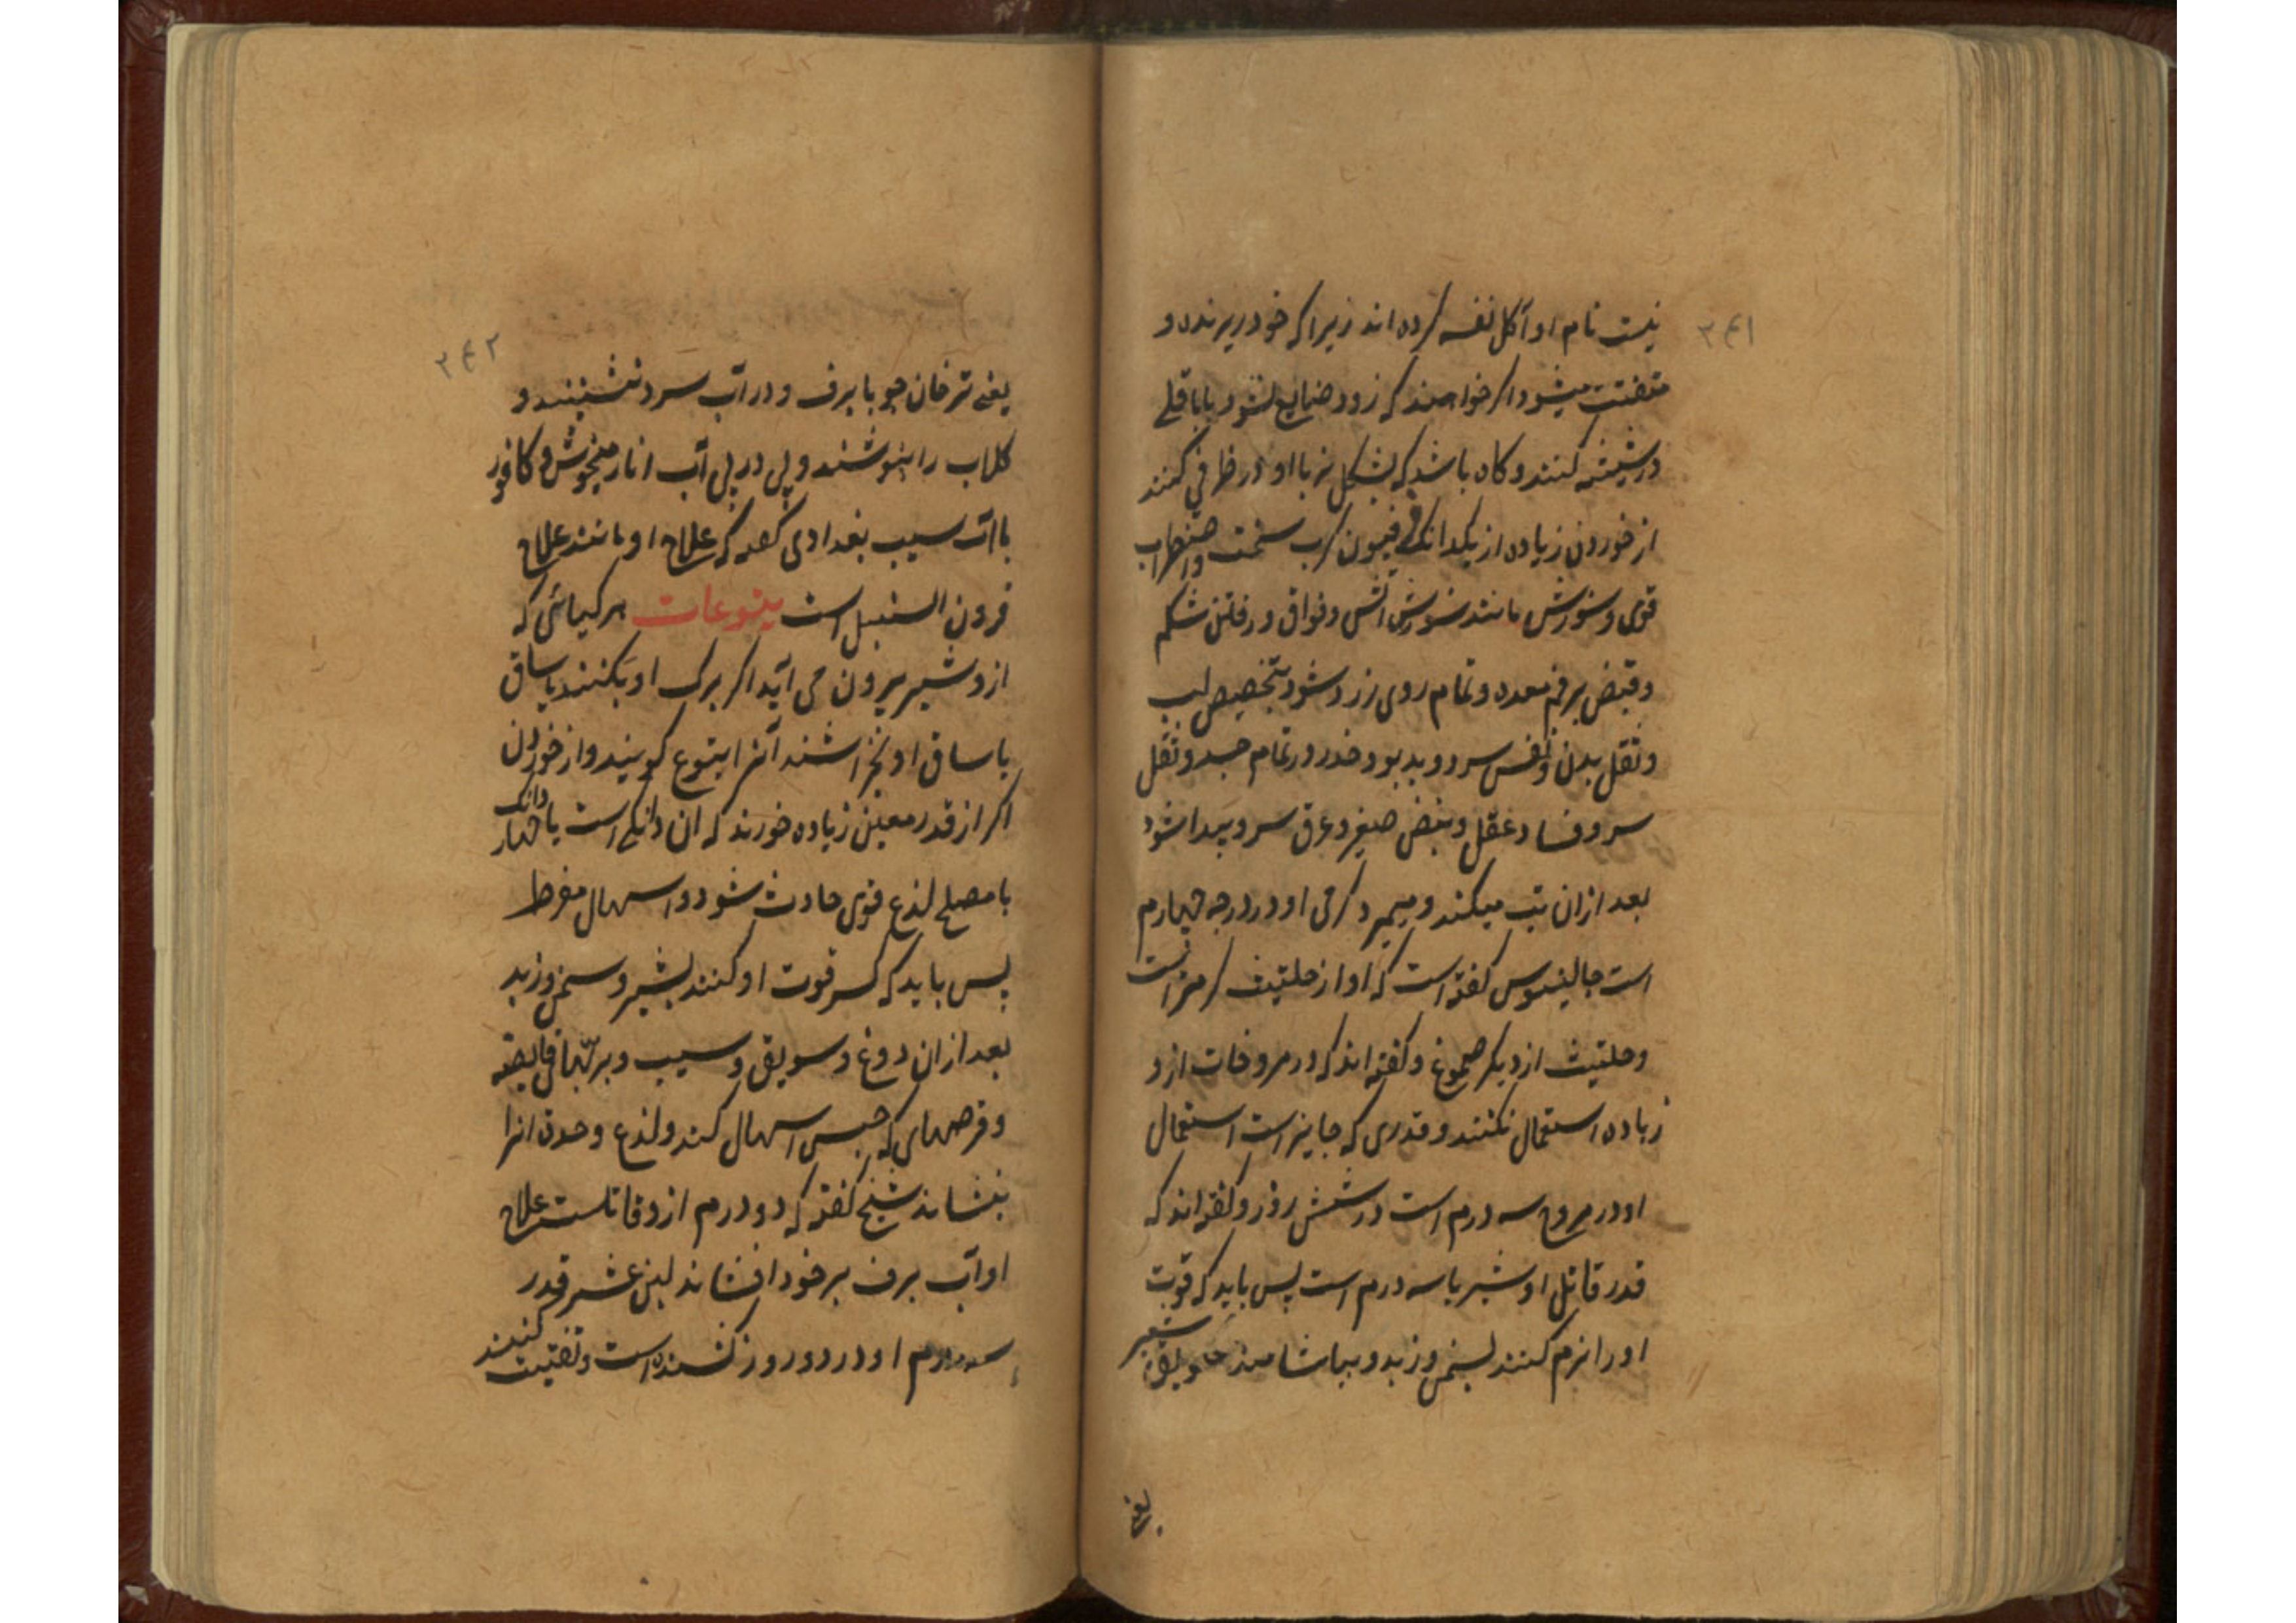 ۲۴۱
نیست نام او آکل نفسه کرده اند زیرا که خود ریزنده و
متفتت میشود اگر خواهند که زود ضایع نشود با باقلی
در شیشه کنند و کاه باشد که بشکل نیز با او در ظرفی کنند
از خوردن زیاده از یکدانکی فرفیون کرب سخت و اضطراب
قوی و سوزش مانند سوزش آتش و فواق و رفتن شکم
و قبض بر فم معده و تمام روی زرد شود بتخصیص لب
و ثقل بدن و نفس سرد و بدبو و خدر در تمام جسد و ثقل
سر و فساد عقل و نبض صغیر و عرق سرد پیدا شود
بعد ازان تب میکند و میمیرد گرمی او در درجه چهارم
است جالینوس کفته است که او از حلتیت گرمتر است
و حلتیت از دیگر صموغ و کفته اند که در مروخات ازو
زیاده استعمال نکنند و قدری که جایز است استعمال
او در مروخ سه درم است در شش روز و کفته اند که
قدر قاتل او شیر با سه درم است پس باید که قوت
او را نرم کنند بسمن و زبد و بیاشامند سویق شعیر
یعنی
۲۴۲
یعنی ترخان جو با برف و در آب سرد نشینند و
کلاب را بنوشند و پی در پی آب انار میخوش و کافور
با آب سیب بغدادی کفته که علاج او مانند علاج
قرون السنبل است یتوعات هر کیاهی که
ازو شیر بیرون می آید اگر برک او بکنند یا ساق
یا ساق او بخراشند آنرا یتوع کویند و از خوردن
اکر از قدر معین زیاده خورند که ان دانکی است یا چهار دانک
با مصلح لذع قوی حادث شود و اسهال مفرط
پس باید که کسر قوت او کنند بشیر و سمن و زبد
بعد ازان دوغ و سویق و سیب و بر بهای قابضه
و قرصهای که حبس اسهال کند و لذع و حدت انرا
بنشاند شیخ کفته که دو درم ازو قاتلست علاج
او آب برف بر خود افشاند لبن عشر قدر
سه درم او در دو روز کشنده است و تفتیت کنند